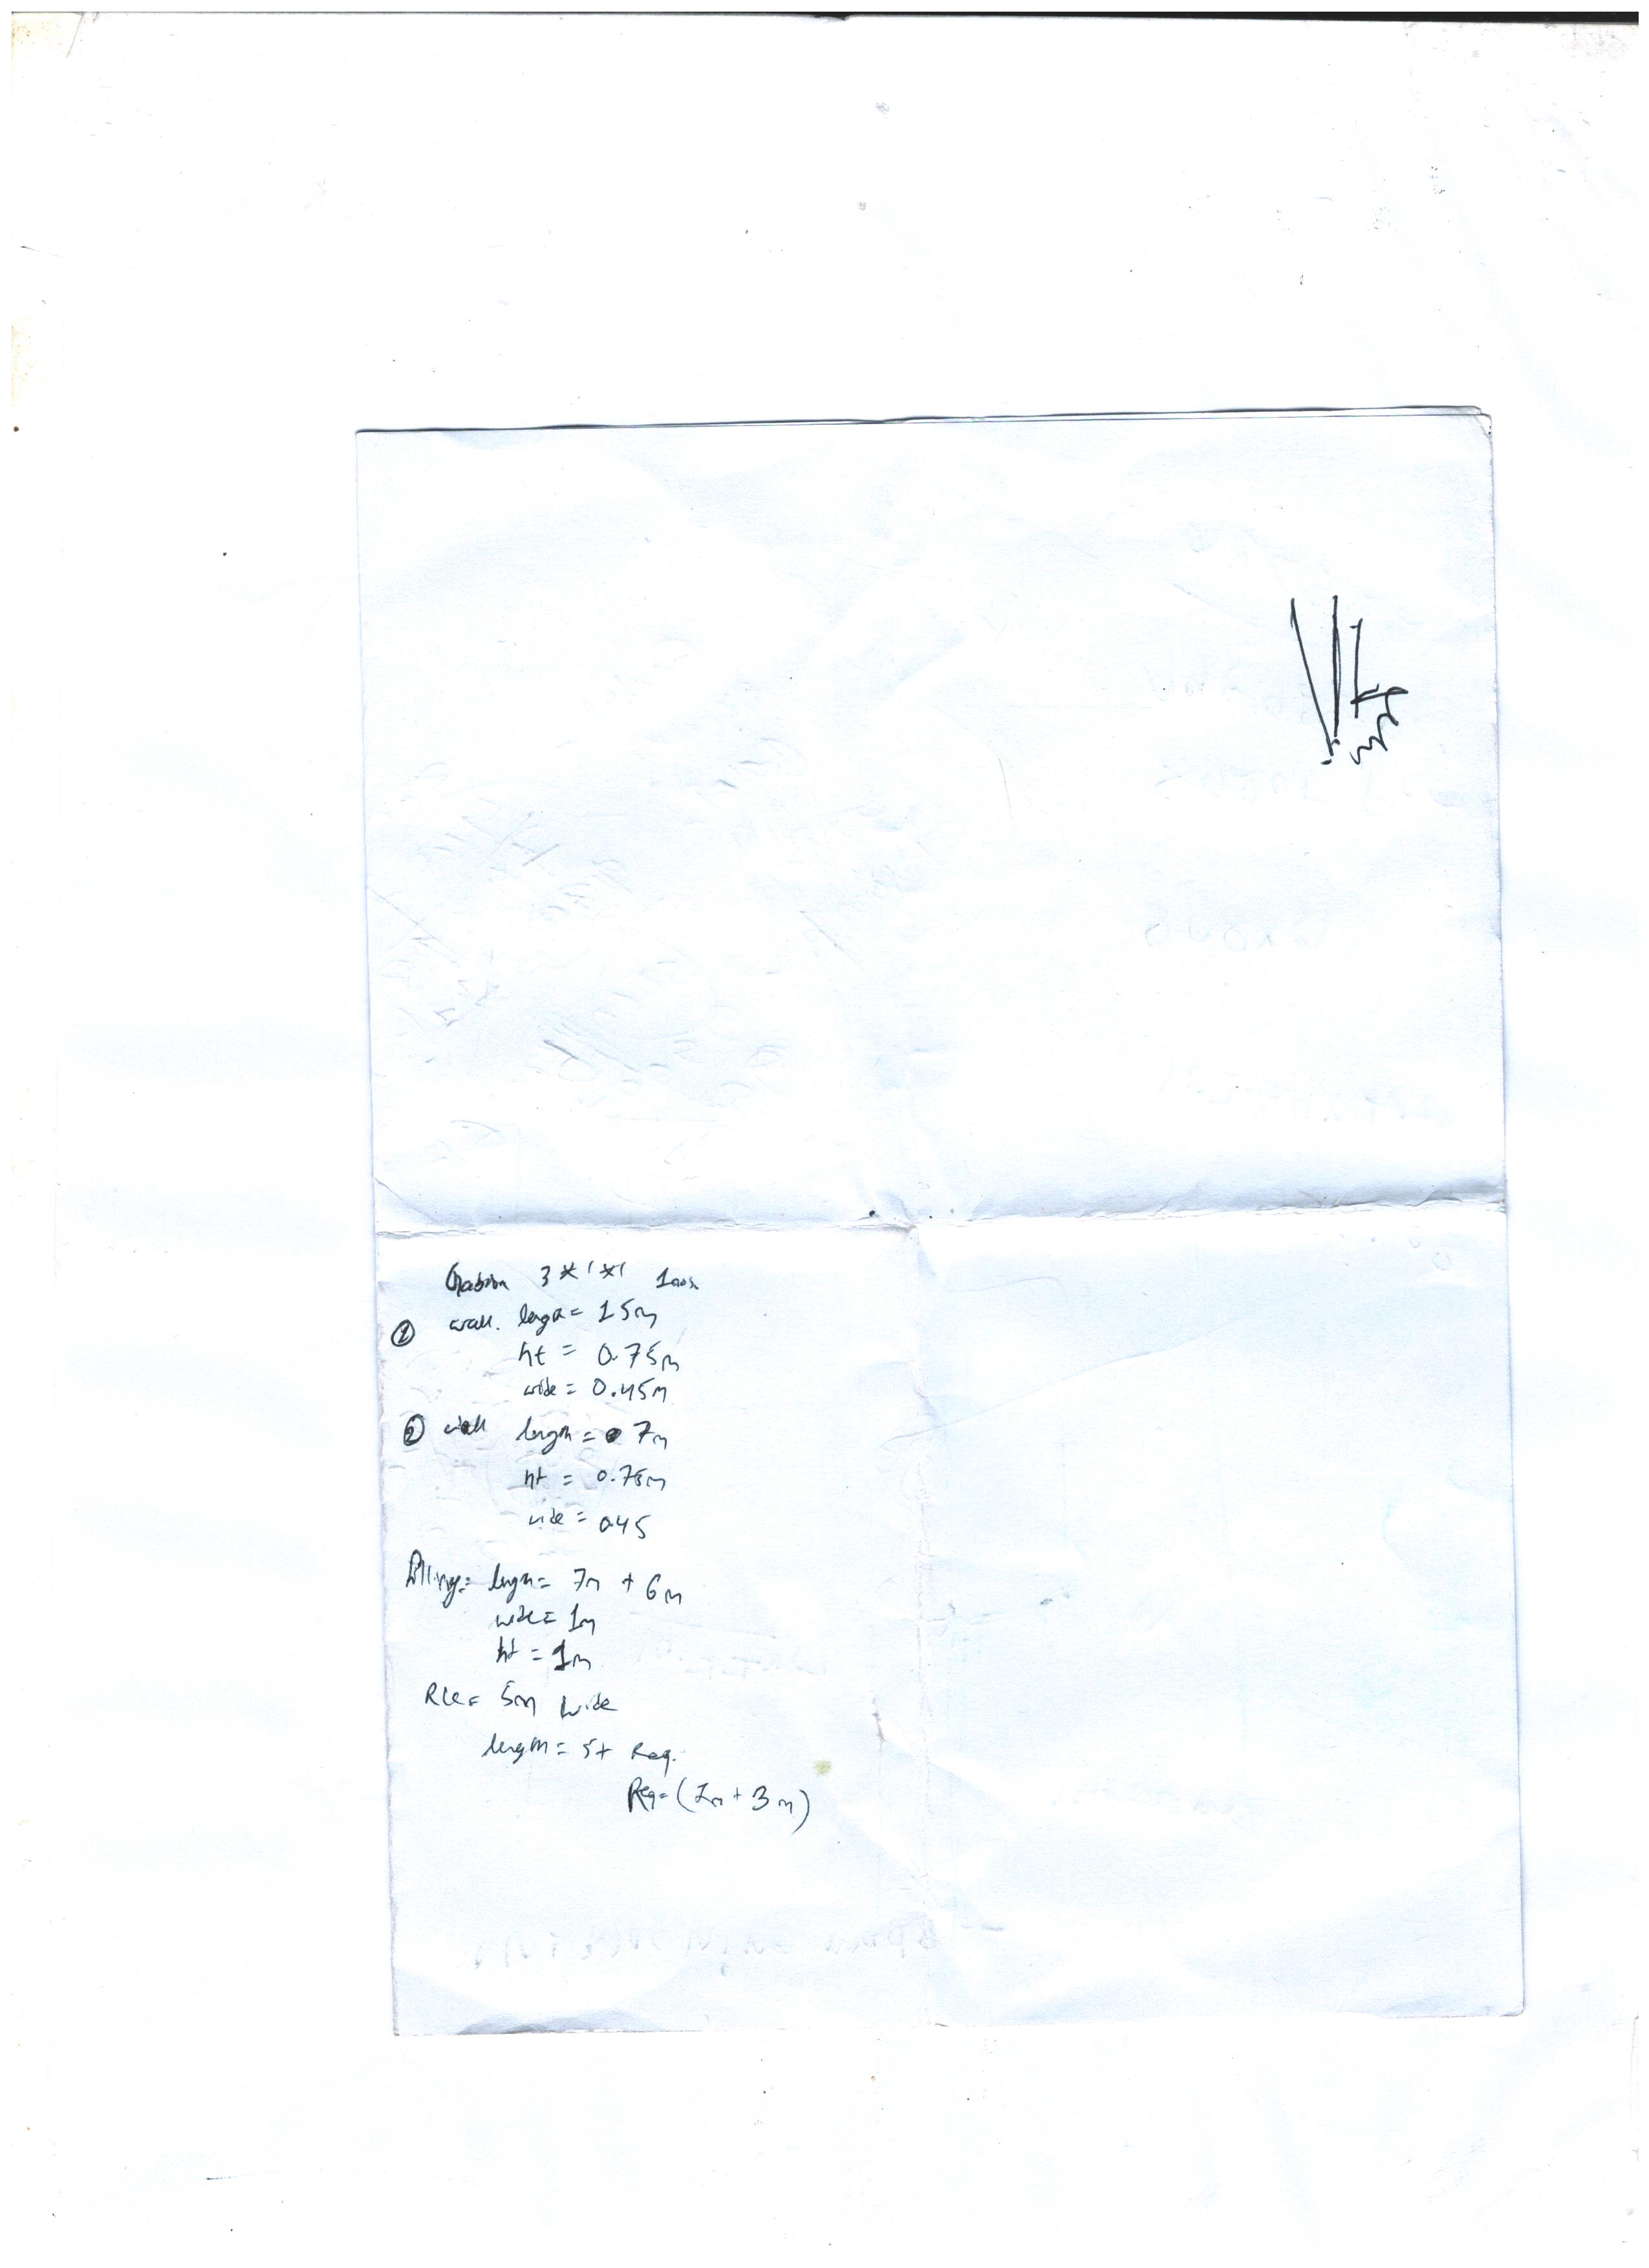 Gabion 3*1*1 1nos.
① wall. length = 15m
ht = 0.75m
wide = 0.45m
② wall length = 7m
ht = 0.75m
wide = 0.45
filling: length = 7m + 6m
wide = 1m
ht = 1m
5m wide
length = 5+ Req.
Req = (1m + 3m)